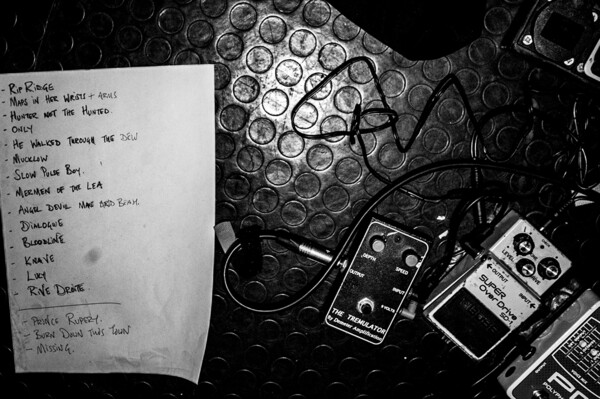 - RIP RIDGE
- MAPS IN HER WRISTS + ARMS
- HUNTER NOT THE HUNTED.
- ONLY
- HE WALKED THROUGH THE DEW
- MUCKLOW
- SLOW PULSE BOY.
- MERMEN OF THE LEA
- ANGEL DEVIL MAN AND BEAM.
- DIALOGUE
- BLOODLINE
- KNAVE
- LUCY
- RIVE DROITE.
- PRINCE RUPERT.
- BURN DOWN THIS TOWN
- MISSING.
DEPTH SPEED
OUTPUT
INPUT
9 VOLTS
THE TREMULATOR
By Demeter Amplification
LEVEL
DRIVE
OUTPUT INPUT
SUPER
OverDrive
SD-1